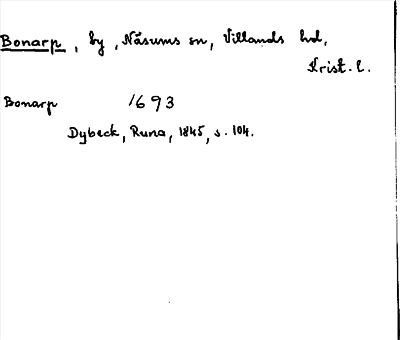 Bonarp, by, Näsums sn, Villands hd,
Krist. l.
Bonarp 1693
Dybeck, Runa, 1845, s. 104.